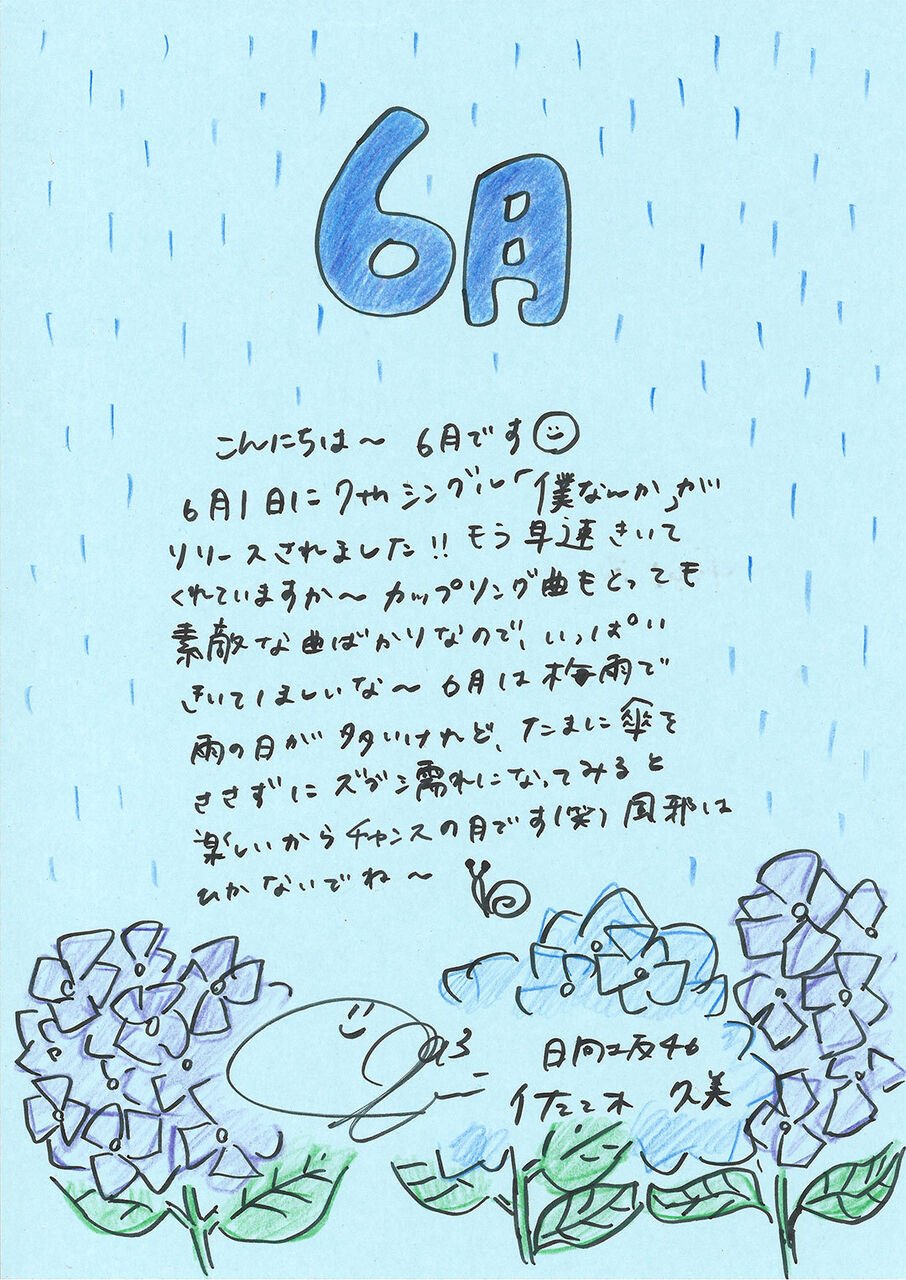 6月
こんにちは〜 6月です
6月1日に7thシングル「僕なんか」が
リリースされました!! もう早速きいて
くれていますか〜 カップリング曲もとっても
素敵な曲ばかりなので、いっぱい
きいてほしいな〜 6月は梅雨で
雨の日が多いけれど、たまに傘を
ささずにズブ濡れになってみると
楽しいからチャンスの月です(笑) 風邪は
ひかないでね〜
日向坂46
佐々木 久美